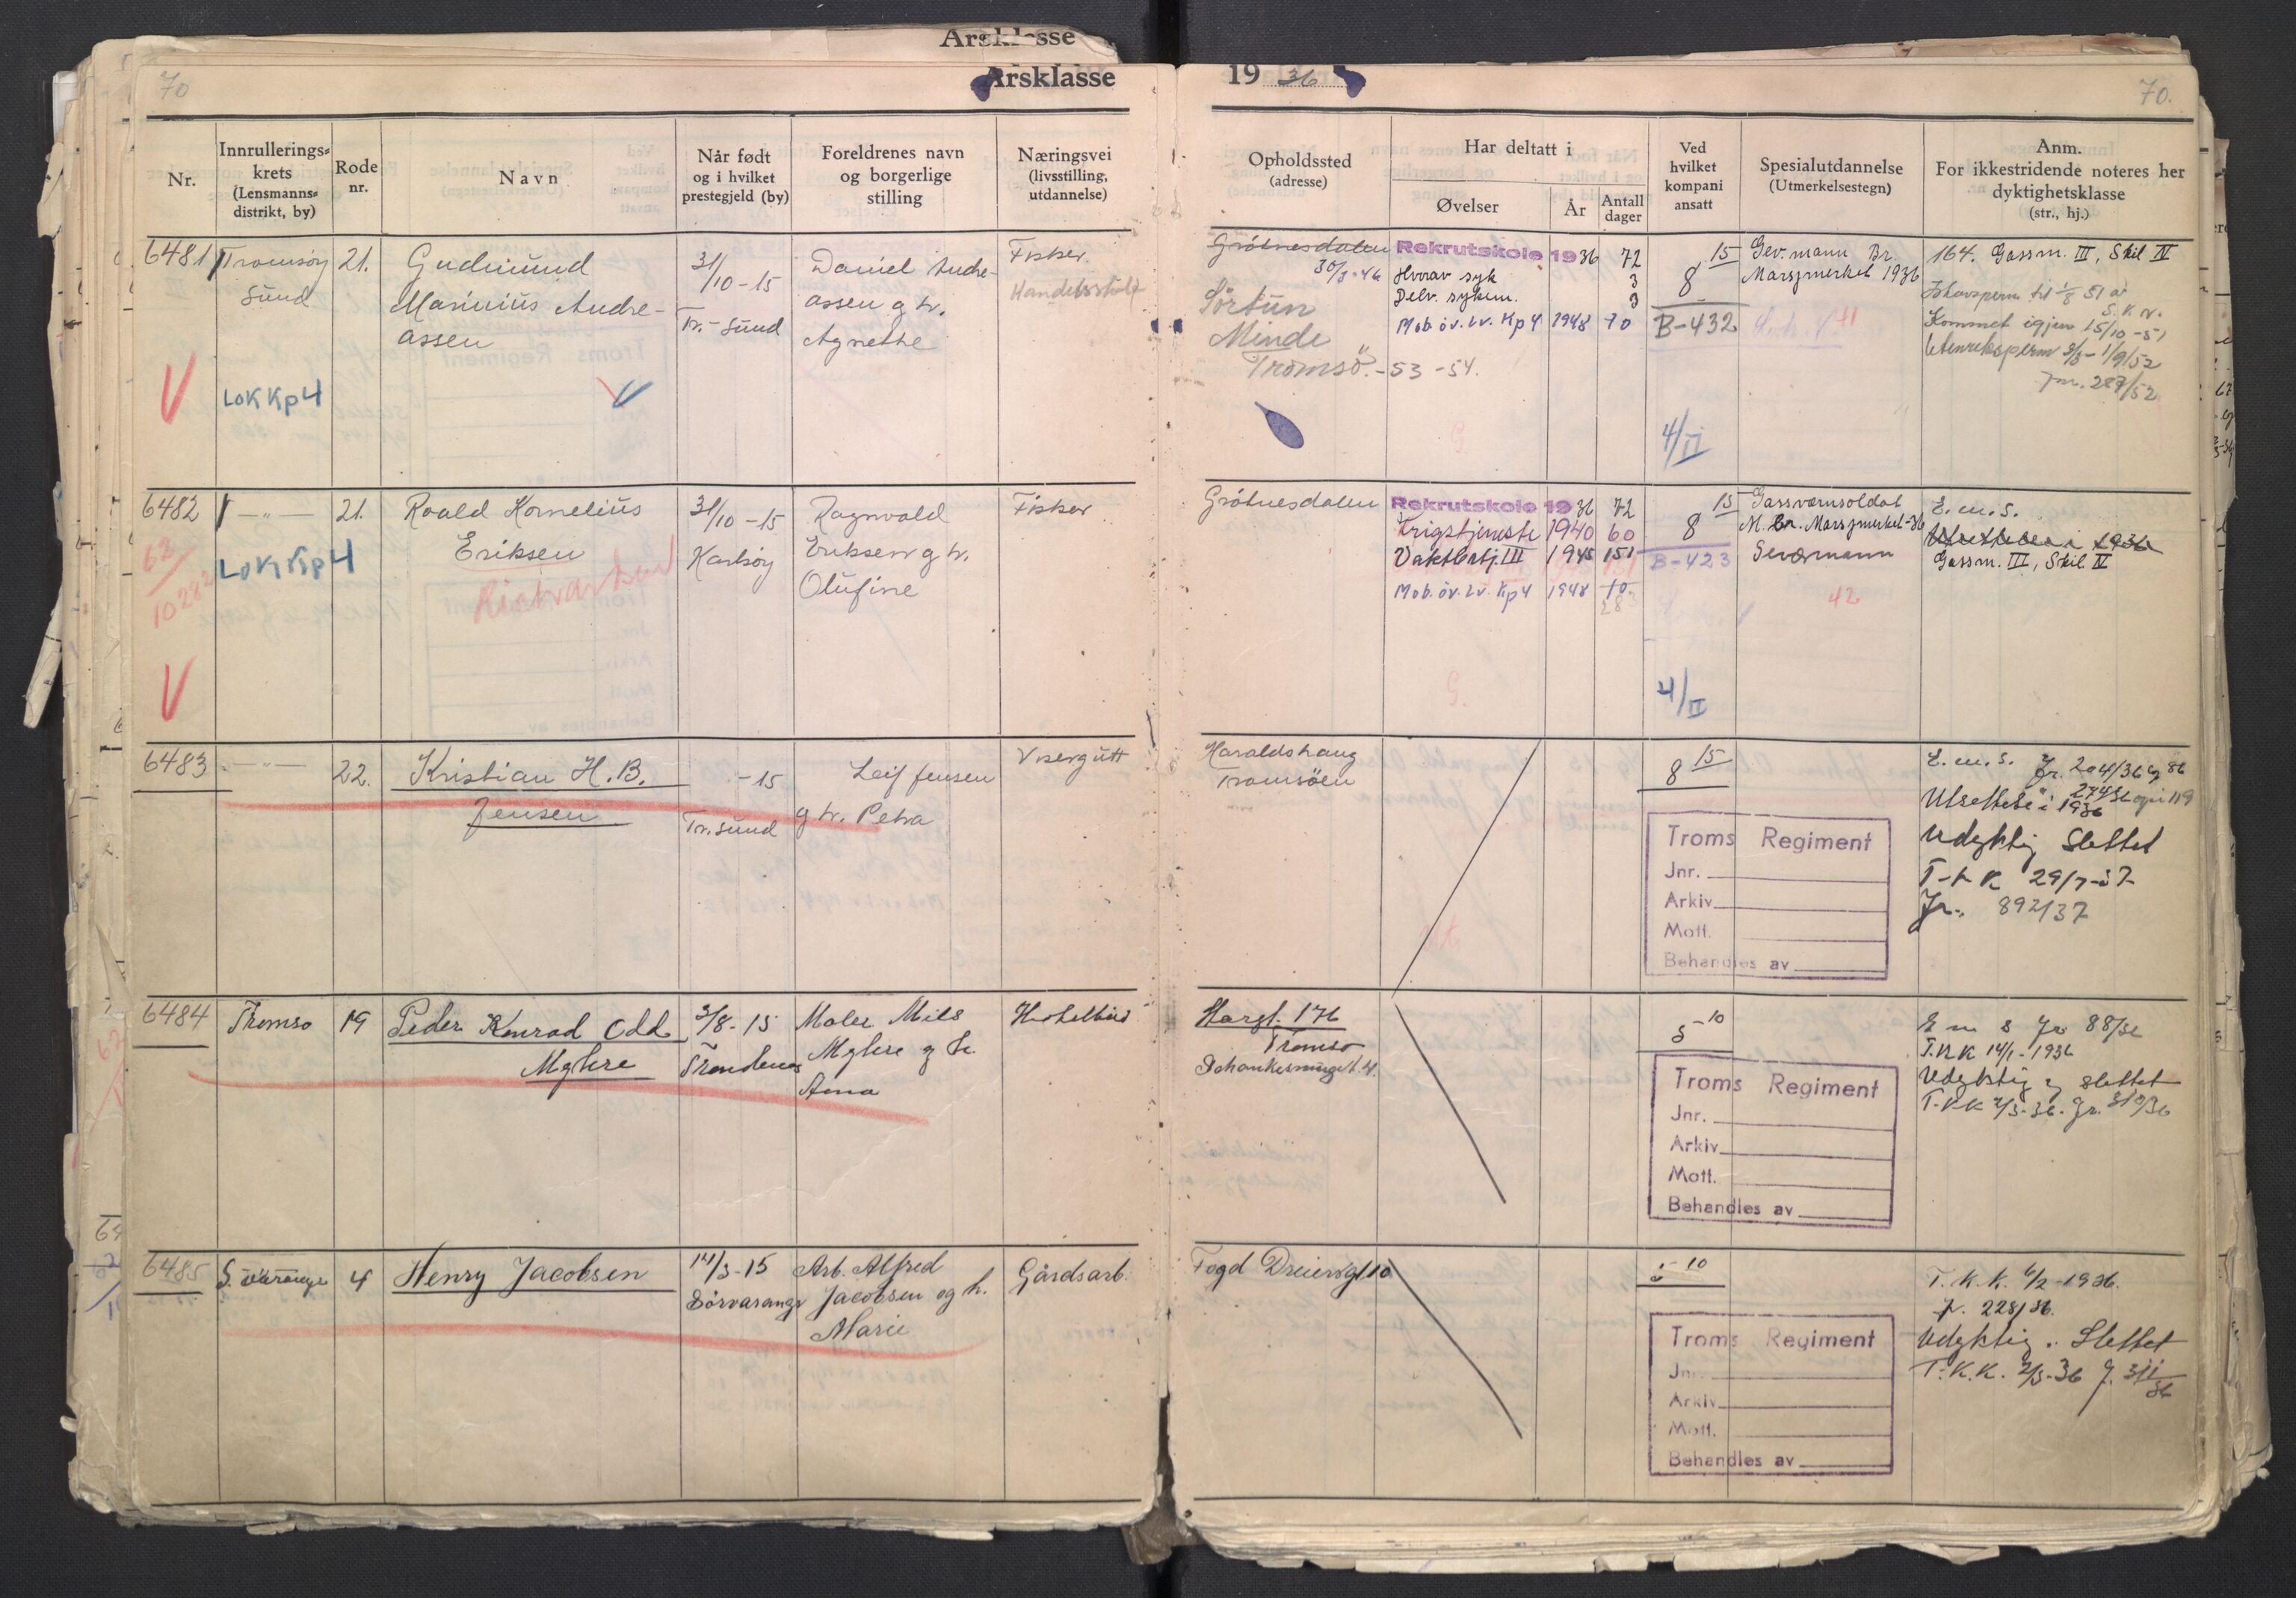 Årsklasse
70
Årsklasse
19 36
70.
Nr.
Innrullerings-
krets
(Lensmanns-
distrikt, by)
Rode
nr.
Navn
Når født
og i hvilket
prestegjeld (by)
Foreldrenes navn
og borgerlige
stilling
Næringsvei
(livsstilling,
utdannelse)
Opholdssted
(adresse)
Har deltatt i
Øvelser
År
Antall
dager
Ved
hvilket
kompani
ansatt
Spesialutdannelse
(Utmerkelsestegn)
Anm.
For ikkestridende noteres her
dyktighetsklasse
(str., hj.)
6481
Tromsøy
sund
21.
Gudmund
Marinius Andre-
assen
31/10-15
Tr.-sund
Daniel Andre-
assen g h.
Agnethe
Fisker.
LOK Kp 4
V
Grötnesdalen
30/3-46
Sörtun
Minde
Tromsö.-53-54.
Rekrutskole 1936 72
Hvorav syk 3
Delv. sykm. 3
Mob. öv. Lv. Kp 4 1948 10
15
8
B-432
4/II
Gev.mann Br.
Marsjmerket 1936
164. Gassm. III, Skil IV
Kommet igjen 15/10-51
Utenriksperm 3/3-1/9/52
Jnr. 287/52
6482
-"-
21.
Roald Kornelius
Eriksen
31/10-15
Karlsöy
Ragnvald
Eriksen g h.
Olufine
Fisker
62
LOK Kp 4
V
Grötnesdalen
Rekrutskole 1936 72
Krigstjeneste 1940 60
Vaktbatj. III 1945 151
Mob. öv. Lv. Kp 4 1948 10
15
8
B-423
4/II
Gassvernsoldat
M. Br. Marsjmerket-36
Geværmann
42
E.m.s.
Utsettelse i 1936
Gassm. III, Skil. IV
6483
-"-
22.
Kristian H. B.
Jensen
-15
Tr. sund
Leif Jensen
g h. Petra
Visergutt
Haraldshaug
Tromsöen
15
8
Troms Regiment
Jnr.
Arkiv
Mott.
Behandles av
E.m.s. Jr. 204/36 og 86
Utsettelse i 1936
Udyktig slettet
T-K K 29/7-37
Jr. 892/37
6484
Tromsø
19
Peder Konrad Odd
Myhre
3/8-15
Trondenes
Maler Nils
Myhre g h.
Anna
Hotelbud
Storgt. 176
Tromsø
10
5
Troms Regiment
Jnr.
Arkiv
Mott.
Behandles av
E m s Jr 88/36
T.K K 14/1-1936
Udyktig g slettet
T.K K 2/3-36. Jr. 310/36
6485
S. Varanger
4
Henry Jacobsen
14/3-15
Sörvaranger
Arb. Alfred
Jacobsen og h.
Marie
Gårdsarb.
Fogd Dreiersgt 10
10
5
Troms Regiment
Jnr.
Arkiv
Mott.
Behandles av
T. K. K. 6/2-1936.
J. 228/36.
Udyktig. Slettet
T. K. K. 2/3-36 J. 311/36